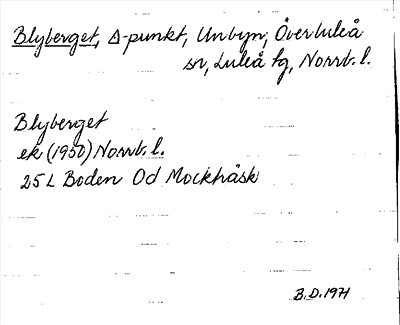 Blyberget, Δ-punkt, Unbyn, Överluleå
sn, Luleå tg, Norrb. l.
Blyberget
ek (1950) Norrb. l.
25 L Boden Od Mockträsk
B. D. 1971